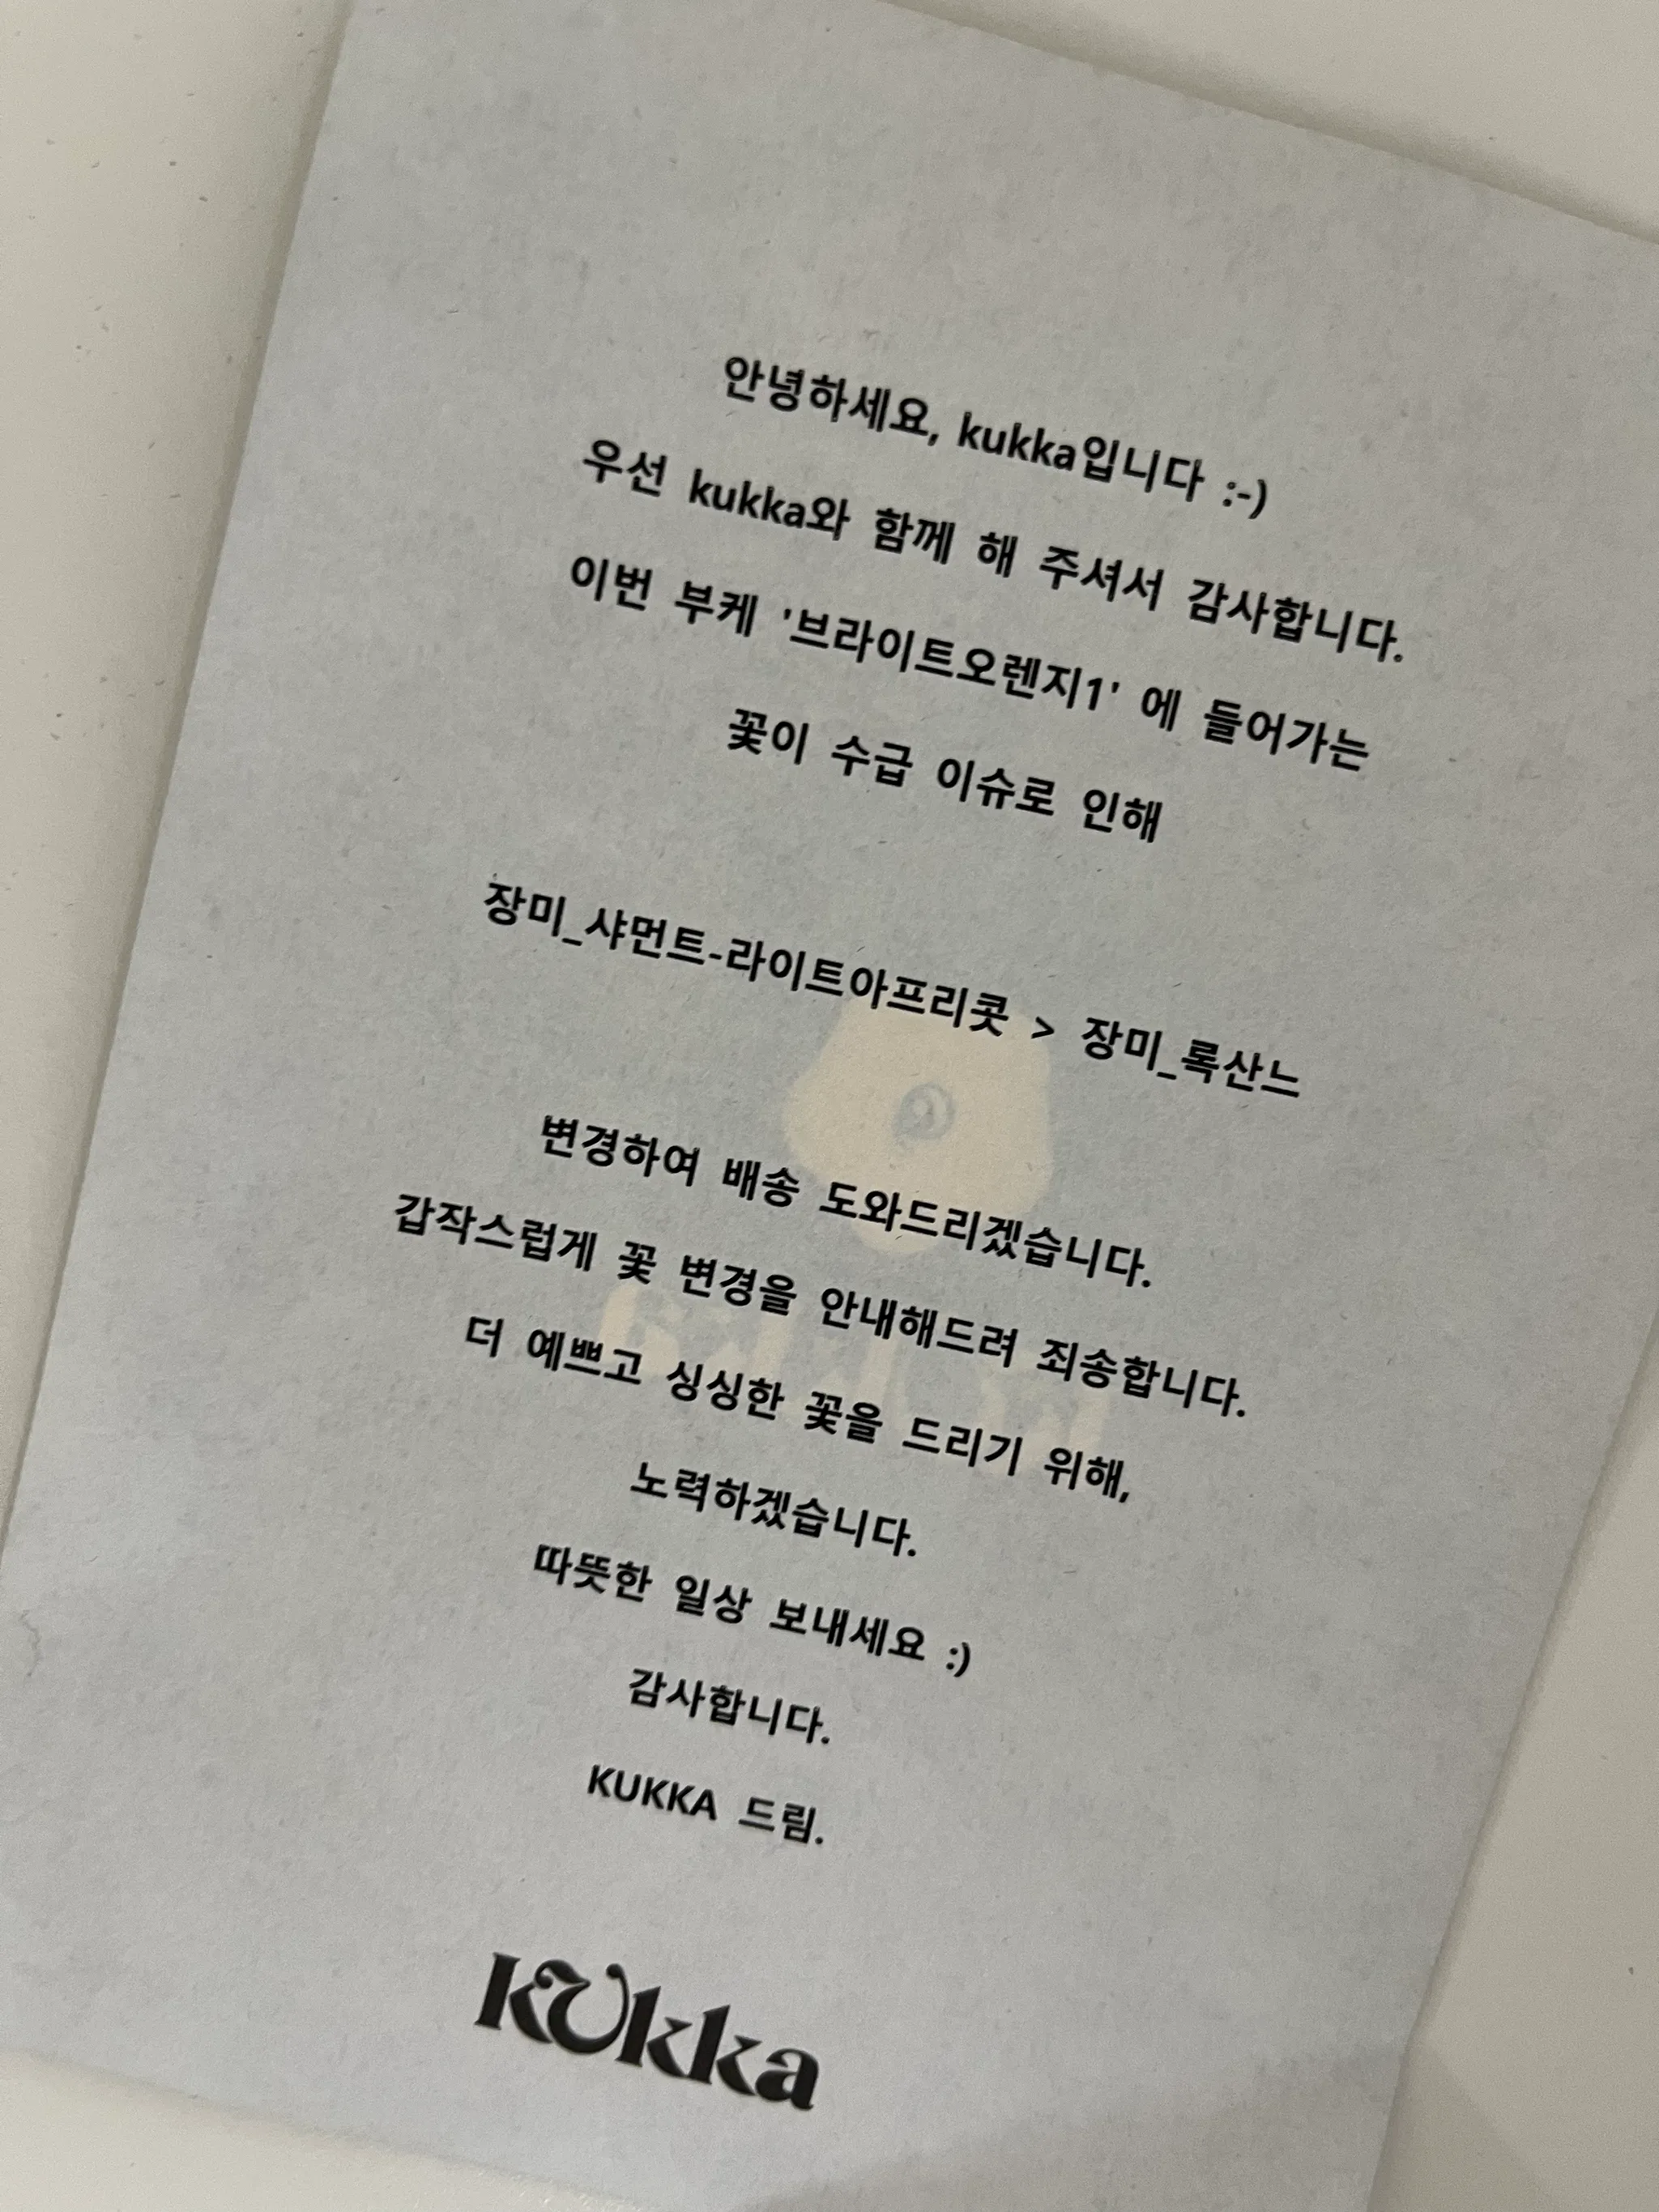 안녕하세요, kukka입니다 :-)
우선 kukka와 함께 해 주셔서 감사합니다.
이번 부케 '브라이트오렌지1' 에 들어가는
꽃이 수급 이슈로 인해
장미_샤먼트-라이트아프리콧 > 장미_록산느
변경하여 배송 도와드리겠습니다.
갑작스럽게 꽃 변경을 안내해드려 죄송합니다.
더 예쁘고 싱싱한 꽃을 드리기 위해,
노력하겠습니다.
따뜻한 일상 보내세요 :)
감사합니다.
KUKKA 드림.
kukka